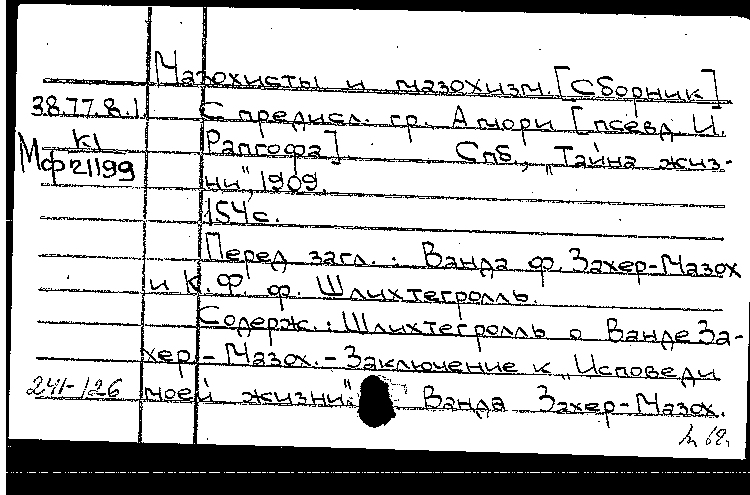 Мазохисты и мазохизм. [Сборник]
38.77.8.1. С предисл. гр. Амори [псевд. И.
К1
Мф21199 Рапгофа] Спб., „Тайна жиз-
ни", 1909.
154 с.
Перед загл.: Ванда ф. Захер-Мазох
и К. Ф. ф. Шлихтегролль.
Содерж.: Шлихтегролль о Ванде За-
хер-Мазох. - Заключение к „Исповеди
241-126 моей жизни". Ванда Захер-Мазох.